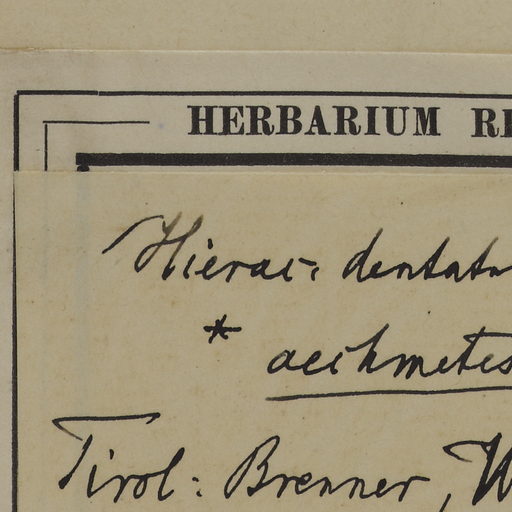 HERBARIUM RE
Hierac: dentat
* aechmetes
Tirol: Brenner, W